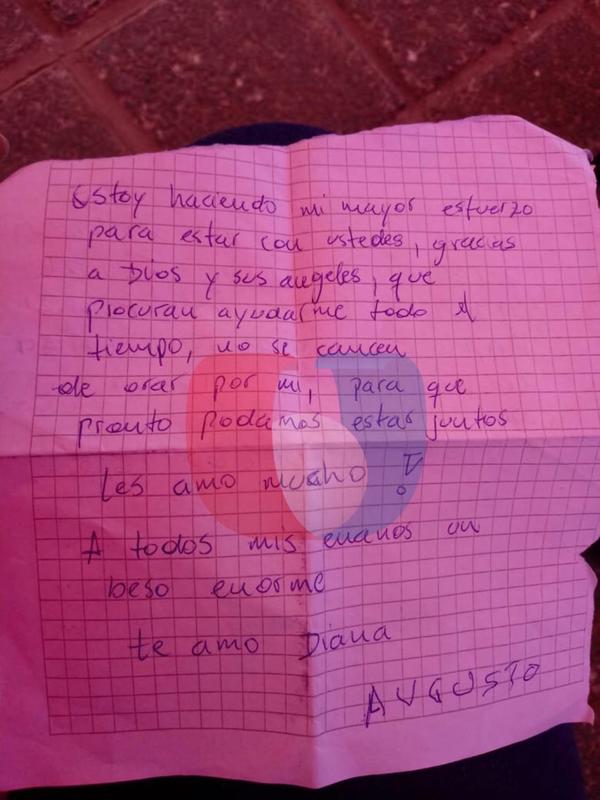 Estoy haciendo mi mayor esfuerzo
para estar con ustedes, gracias
a Dios y sus angeles, que
procuran ayudarme todo A
tiempo, no se cancen
de orar por mi, para que
pronto podamos estar juntos
Les amo mucho !
A todos mis enanos un
beso enorme
te amo Diana
AUGUSTO